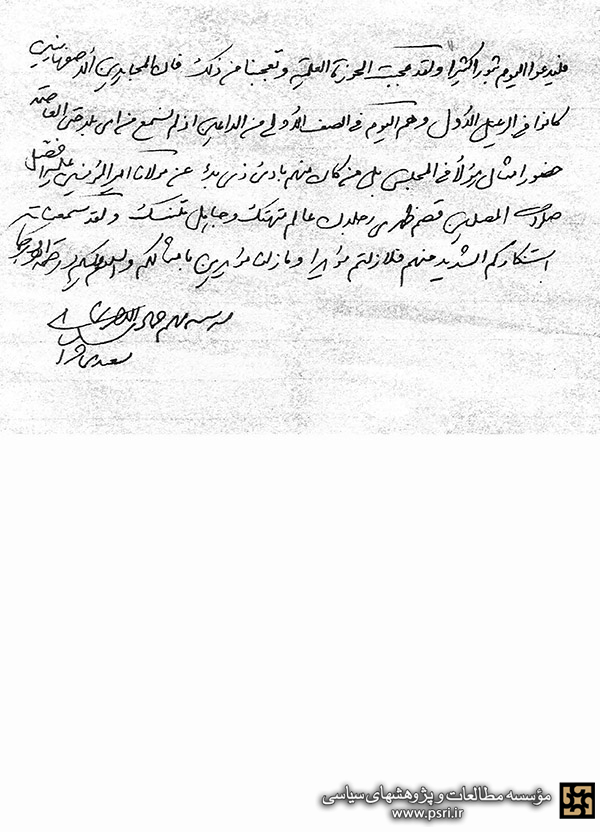 فليدعوا اليوم ثبورا كثيرا ولقد عجبت الحوزة العلمية وتعجبنا من ذلك فان المجاهدين الاصفهانيين
كانوا في الرعيل الاول وهم اليوم في الصف الاول من الداعين اذ لم نسمع من اي بلد حتى العاصمة
حضور امثال هؤلاء في المجلس بلى من كان منهم بادئ ذي بدء عن مولانا امير المؤمنين عليه افضل
صلوات المصلين قصم ظهري رجلان عالم متهتك وجاهل متنسك ولقد سمعنا
استنكاركم الشديد منهم فلازلتم مؤيدا ومازلنا مؤيدين بامثالكم والسلام عليكم ورحمة الله وبركاته
مؤسسه مطالعات و پژوهشهای سیاسی
www.psri.ir